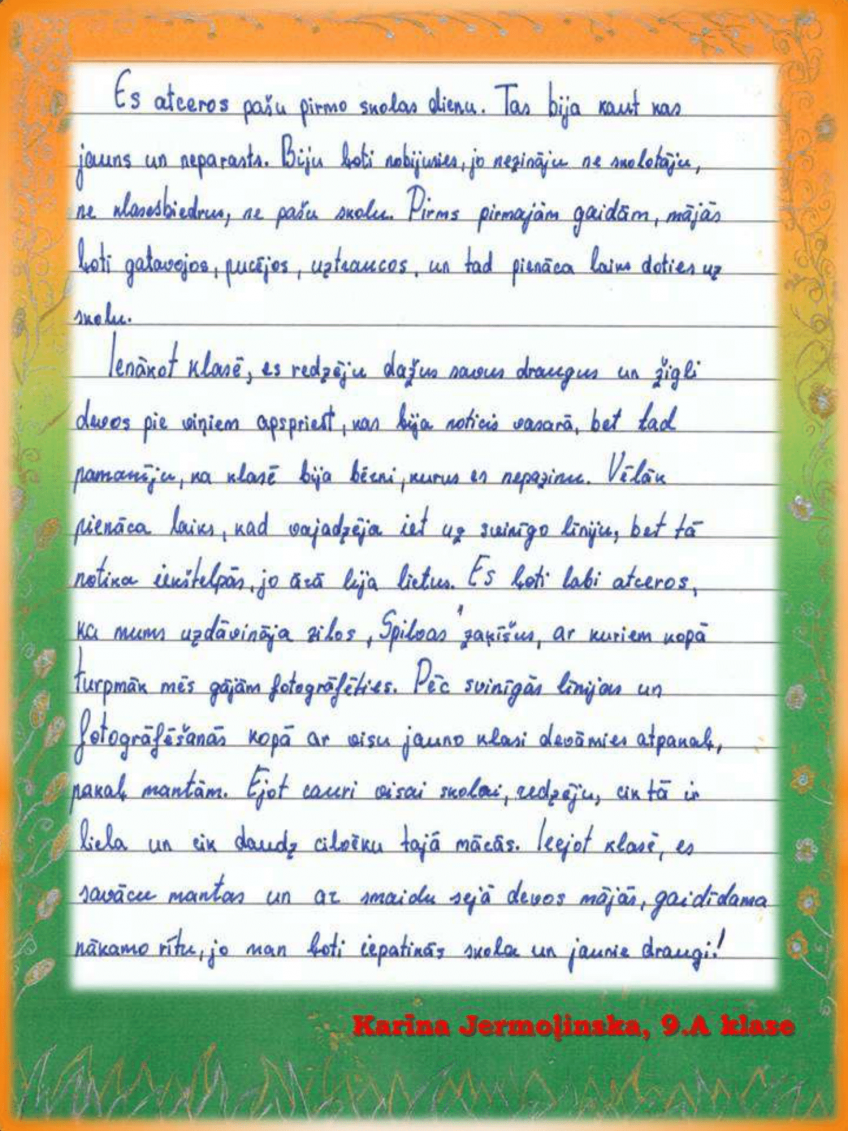 Es atceros pašu pirmo skolas dienu. Tas bija kaut kas
jauns un neparasts. Biju ļoti nobijusies, jo nezināju ne skolotāju,
ne klasesbiedrus, ne pašu skolu. Pirms pirmajām gaidām, mājās
ļoti gatavojos, pucējos, uztraucos, un tad pienāca laiks doties uz
skolu.
Ienākot klasē, es redzēju dažus savus draugus un žigli
devos pie viņiem apspriest, kas bija noticis vasarā, bet tad
pamanīju, ka klasē bija bērni, kurus es nepazinu. Vēlāk
pienāca laiks, kad vajadzēja iet uz svinīgo līniju, bet tā
notika iekštelpās, jo ārā lija lietus. Es ļoti labi atceros,
ka mums uzdāvināja zilos "Spilvas" zaķīšus, ar kuriem kopā
turpmāk mēs gājām fotogrāfēties. Pēc svinīgās līnijas un
fotogrāfēšanās kopā ar visu jauno klasi devāmies atpakaļ,
pakaļ mantām. Ejot cauri visai skolai, redzēju, cik tā ir
liela un cik daudz cilvēku tajā mācās. Ieejot klasē, es
savācu mantas un ar smaidu sejā devos mājās, gaidīdama
nākamo rītu, jo man ļoti iepatikās skola un jaunie draugi!
Karīna Jermoļinska, 9.A klase